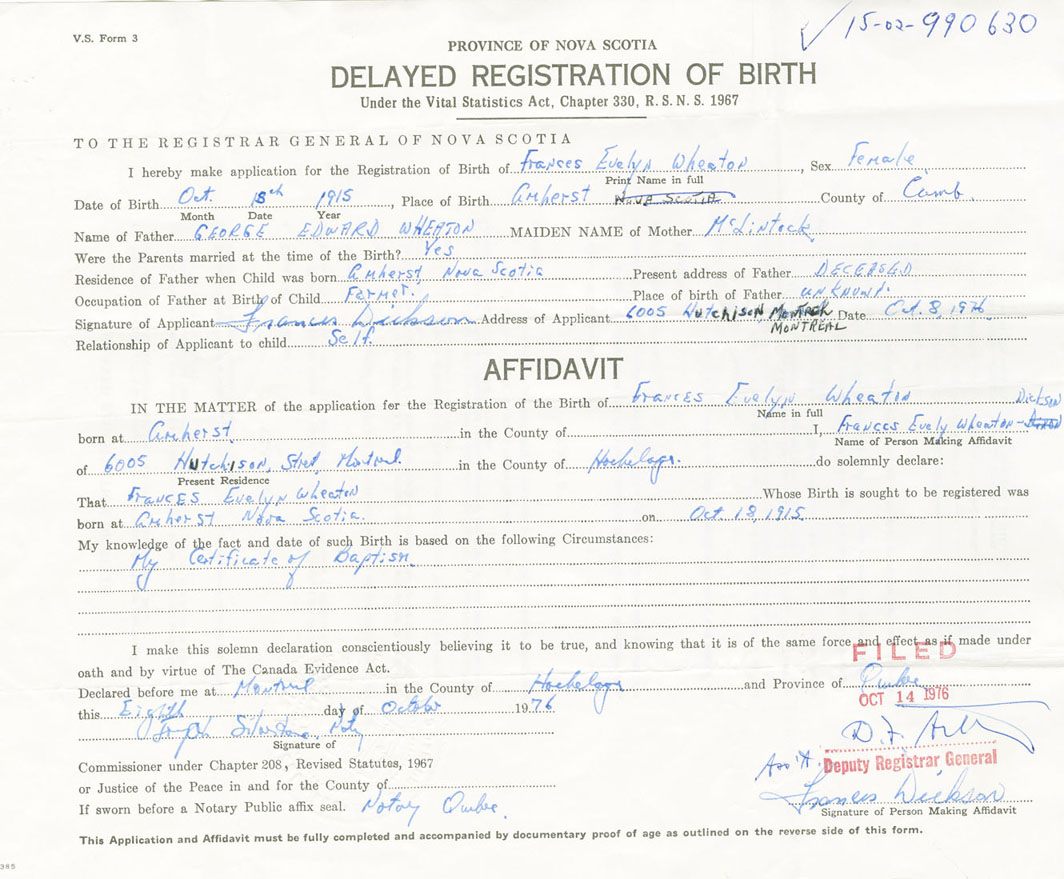 V.S. Form 3
15-02-990630
PROVINCE OF NOVA SCOTIA
DELAYED REGISTRATION OF BIRTH
Under the Vital Statistics Act, Chapter 330, R.S.N.S. 1967
TO THE REGISTRAR GENERAL OF NOVA SCOTIA
I hereby make application for the Registration of Birth of Frances Evelyn Wheaton, Sex Female
Print Name in full
Date of Birth Oct. 18th 1915, Place of Birth Amherst NOVA SCOTIA County of Cumb.
Month Date Year
Name of Father GEORGE EDWARD WHEATON MAIDEN NAME of Mother McLintock
Were the Parents married at the time of the Birth? Yes
Residence of Father when Child was born Amherst, Nova Scotia Present address of Father DECEASED
Occupation of Father at Birth of Child Farmer. Place of birth of Father UNKNOWN.
Signature of Applicant Frances Dickson Address of Applicant 6005 Hutchison, Montreal Date Oct. 8, 1976
MONTREAL
Relationship of Applicant to child Self
AFFIDAVIT
IN THE MATTER of the application for the Registration of the Birth of Frances Evelyn Wheaton
Name in full
Dickson
born at Amherst in the County of I, Frances Evely Wheaton-
Name of Person Making Affidavit
of 6005 Hutchison, Street, Montreal in the County of Hochelaga. do solemnly declare:
Present Residence
That Frances Evelyn Wheaton Whose Birth is sought to be registered was
born at Amherst Nova Scotia. on Oct. 18, 1915
My knowledge of the fact and date of such Birth is based on the following Circumstances:
My Certificate of Baptism.
I make this solemn declaration conscientiously believing it to be true, and knowing that it is of the same force and effect as if made under
oath and by virtue of The Canada Evidence Act.
FILED
Declared before me at Montreal in the County of Hochelaga and Province of Quebec
OCT 14 1976
this Eighth day of October 1976
Joseph Noty
Signature of
D.F.
Ass't. Deputy Registrar General
Commissioner under Chapter 208, Revised Statutes, 1967
or Justice of the Peace in and for the County of
If sworn before a Notary Public affix seal. Notary Quebec.
Frances Dickson
Signature of Person Making Affidavit
This Application and Affidavit must be fully completed and accompanied by documentary proof of age as outlined on the reverse side of this form.
385